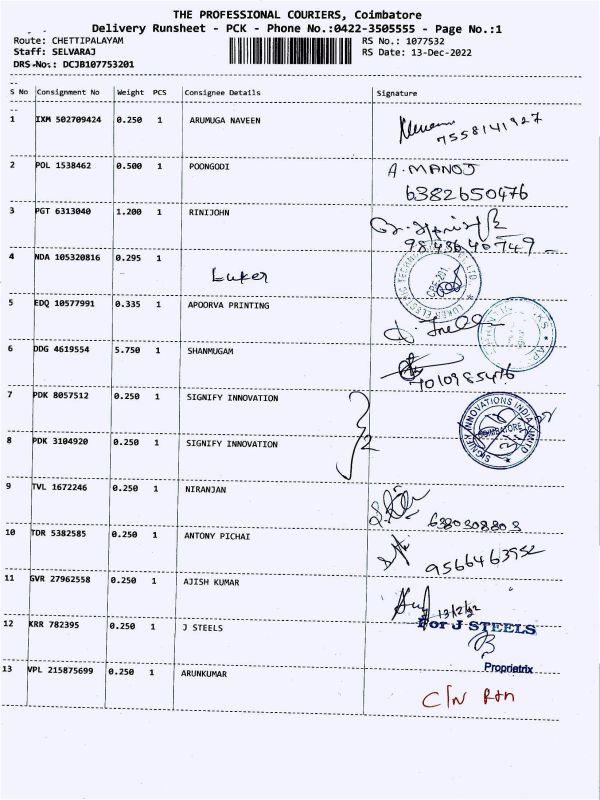 THE PROFESSIONAL COURIERS, Coimbatore
Delivery Runsheet - PCK - Phone No.:0422-3505555 - Page No.:1
Route: CHETTIPALAYAM RS No.: 1077532
Staff: SELVARAJ RS Date: 13-Dec-2022
DRS-No.: DCJB107753201
S No Consignment No Weight PCS Consignee Details Signature
1 IXM 502709424 0.250 1 ARUMUGA NAVEEN
7558141927
2 POL 1538462 0.500 1 POONGODI A. MANOJ
6382650476
3 PGT 6313040 1.200 1 RINIJOHN
9843640749
4 NDA 105320816 0.295 1 Luker
5 EDQ 10577991 0.335 1 APOORVA PRINTING
6 DDG 4619554 5.750 1 SHANMUGAM
7 PDK 8057512 0.250 1 SIGNIFY INNOVATION
SIGNIFY INNOVATIONS INDIA LIMITED
COIMBATORE
8 PDK 3104920 0.250 1 SIGNIFY INNOVATION 2
9 TVL 1672246 0.250 1 NIRANJAN
6380308803
10 TDR 5382585 0.250 1 ANTONY PICHAI
9566463952
11 GVR 27962558 0.250 1 AJISH KUMAR
13/12/22
12 KRR 782395 0.250 1 J STEELS For J STEELS
Proprietrix
13 VPL 215875699 0.250 1 ARUNKUMAR
C/N Rtn